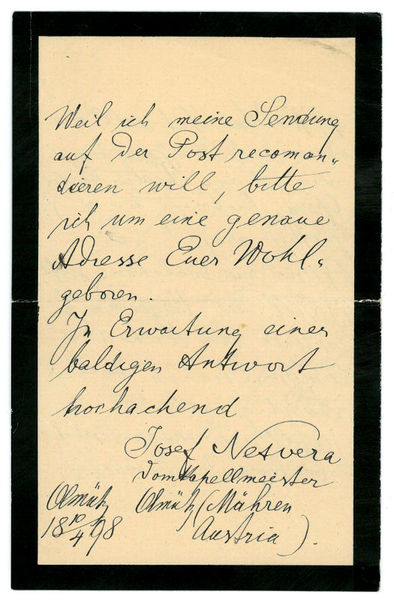 Weil ich meine Sendung
auf der Post recoman-
dieren will, bitte
ich um eine genaue
Adresse Euer Wohl-
geboren.
In Erwartung einer
baldigen Antwort
hochachend
Josef Nesvera
Domkapellmeister
Olmütz Olmütz (Mähren
18 10/4 98 Austria).